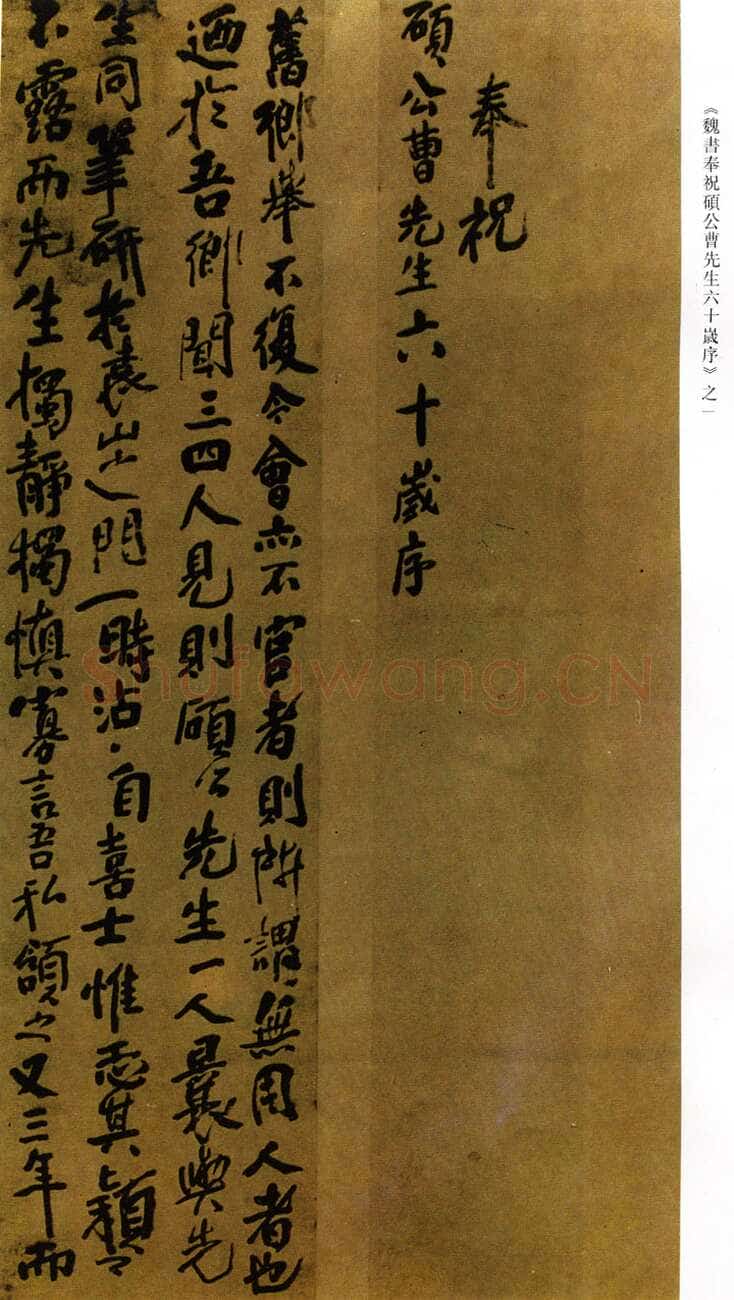 《魏書奉祝碩公曹先生六十歲序》之一
奉祝
碩公曹先生六十歲序
舊鄉舉不復今會亦不官者則所謂無用人者也
迺於吾鄉聞三四人見則碩公先生一人曩與先
生同筆研於袁山之門一時沾〃自喜士惟恐其穎之
不露而先生獨靜獨慎寡言吾私頷之又三年而
Shufawang.CN